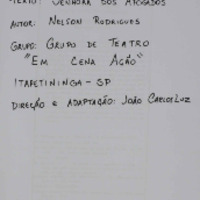 TEXTO: SENHORA DOS AFOGADOS
AUTOR: NELSON RODRIGUES
GRUPO: GRUPO DE TEATRO
"EM CENA AÇÃO"
ITAPETININGA - SP
DIREÇÃO E ADAPTAÇÃO: JOÃO CARLOS LUZ